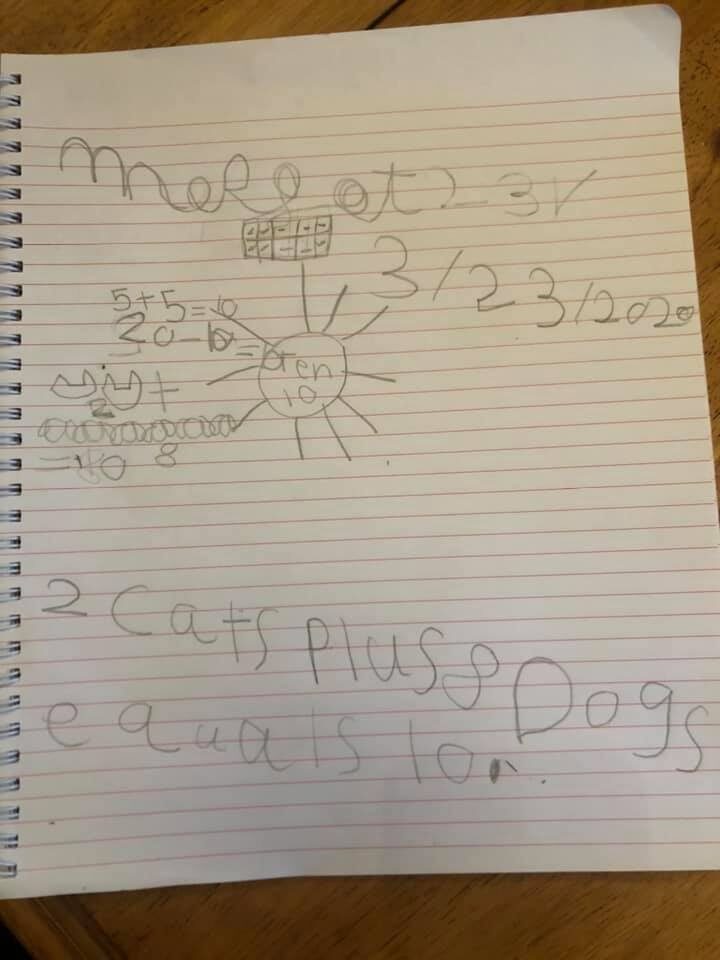 3/23/2020
5+5=10
20-10=
ten
10
2
+
=10 8
2 Cats plus 8 Dogs
equals 10.